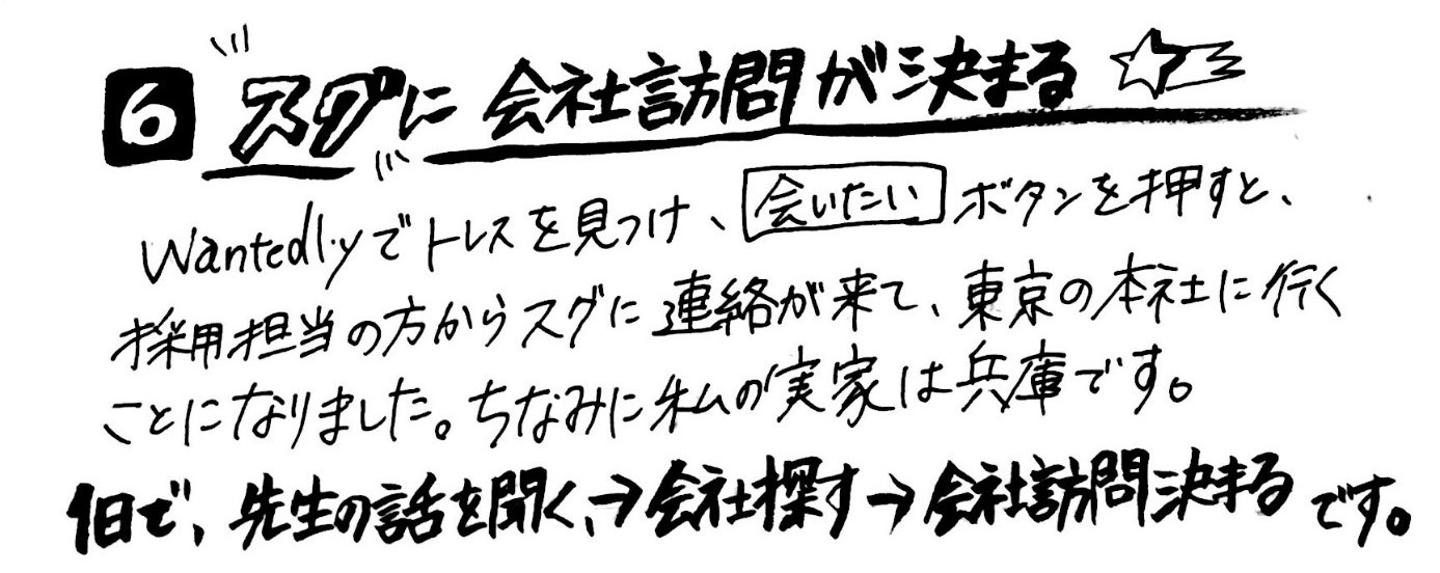 6 スグに会社訪問が決まる
Wantedlyでトレスを見つけ、会いたいボタンを押すと、
採用担当の方からスグに連絡が来て、東京の本社に行く
ことになりました。ちなみに私の実家は兵庫です。
1日で、先生の話を聞く、→会社探す→会社訪問決まるです。